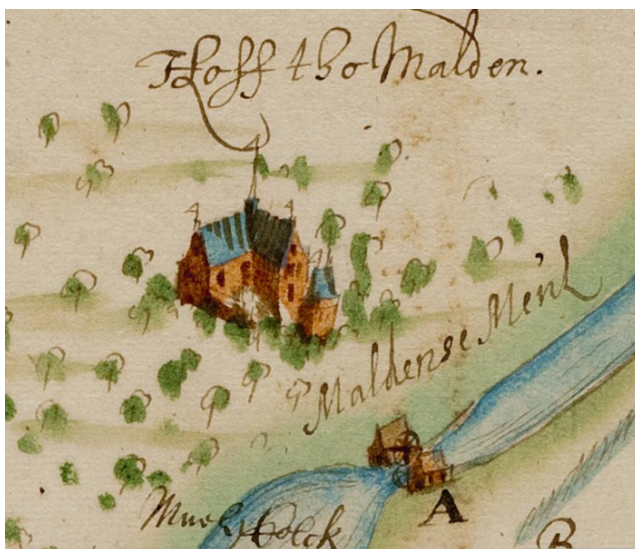 Hoff tho Malden.
Maldense Meul
A
Muel Kolck
B